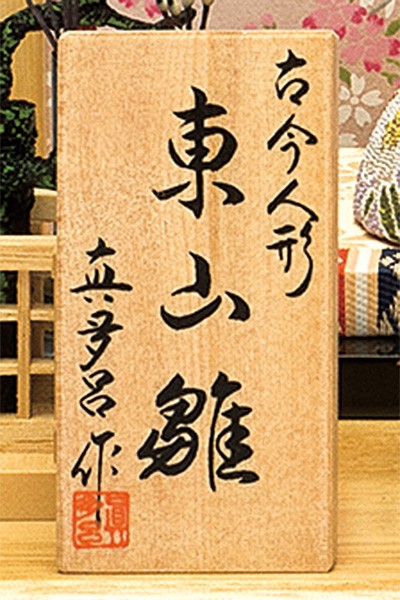 古今人形
東山雛
真多呂作